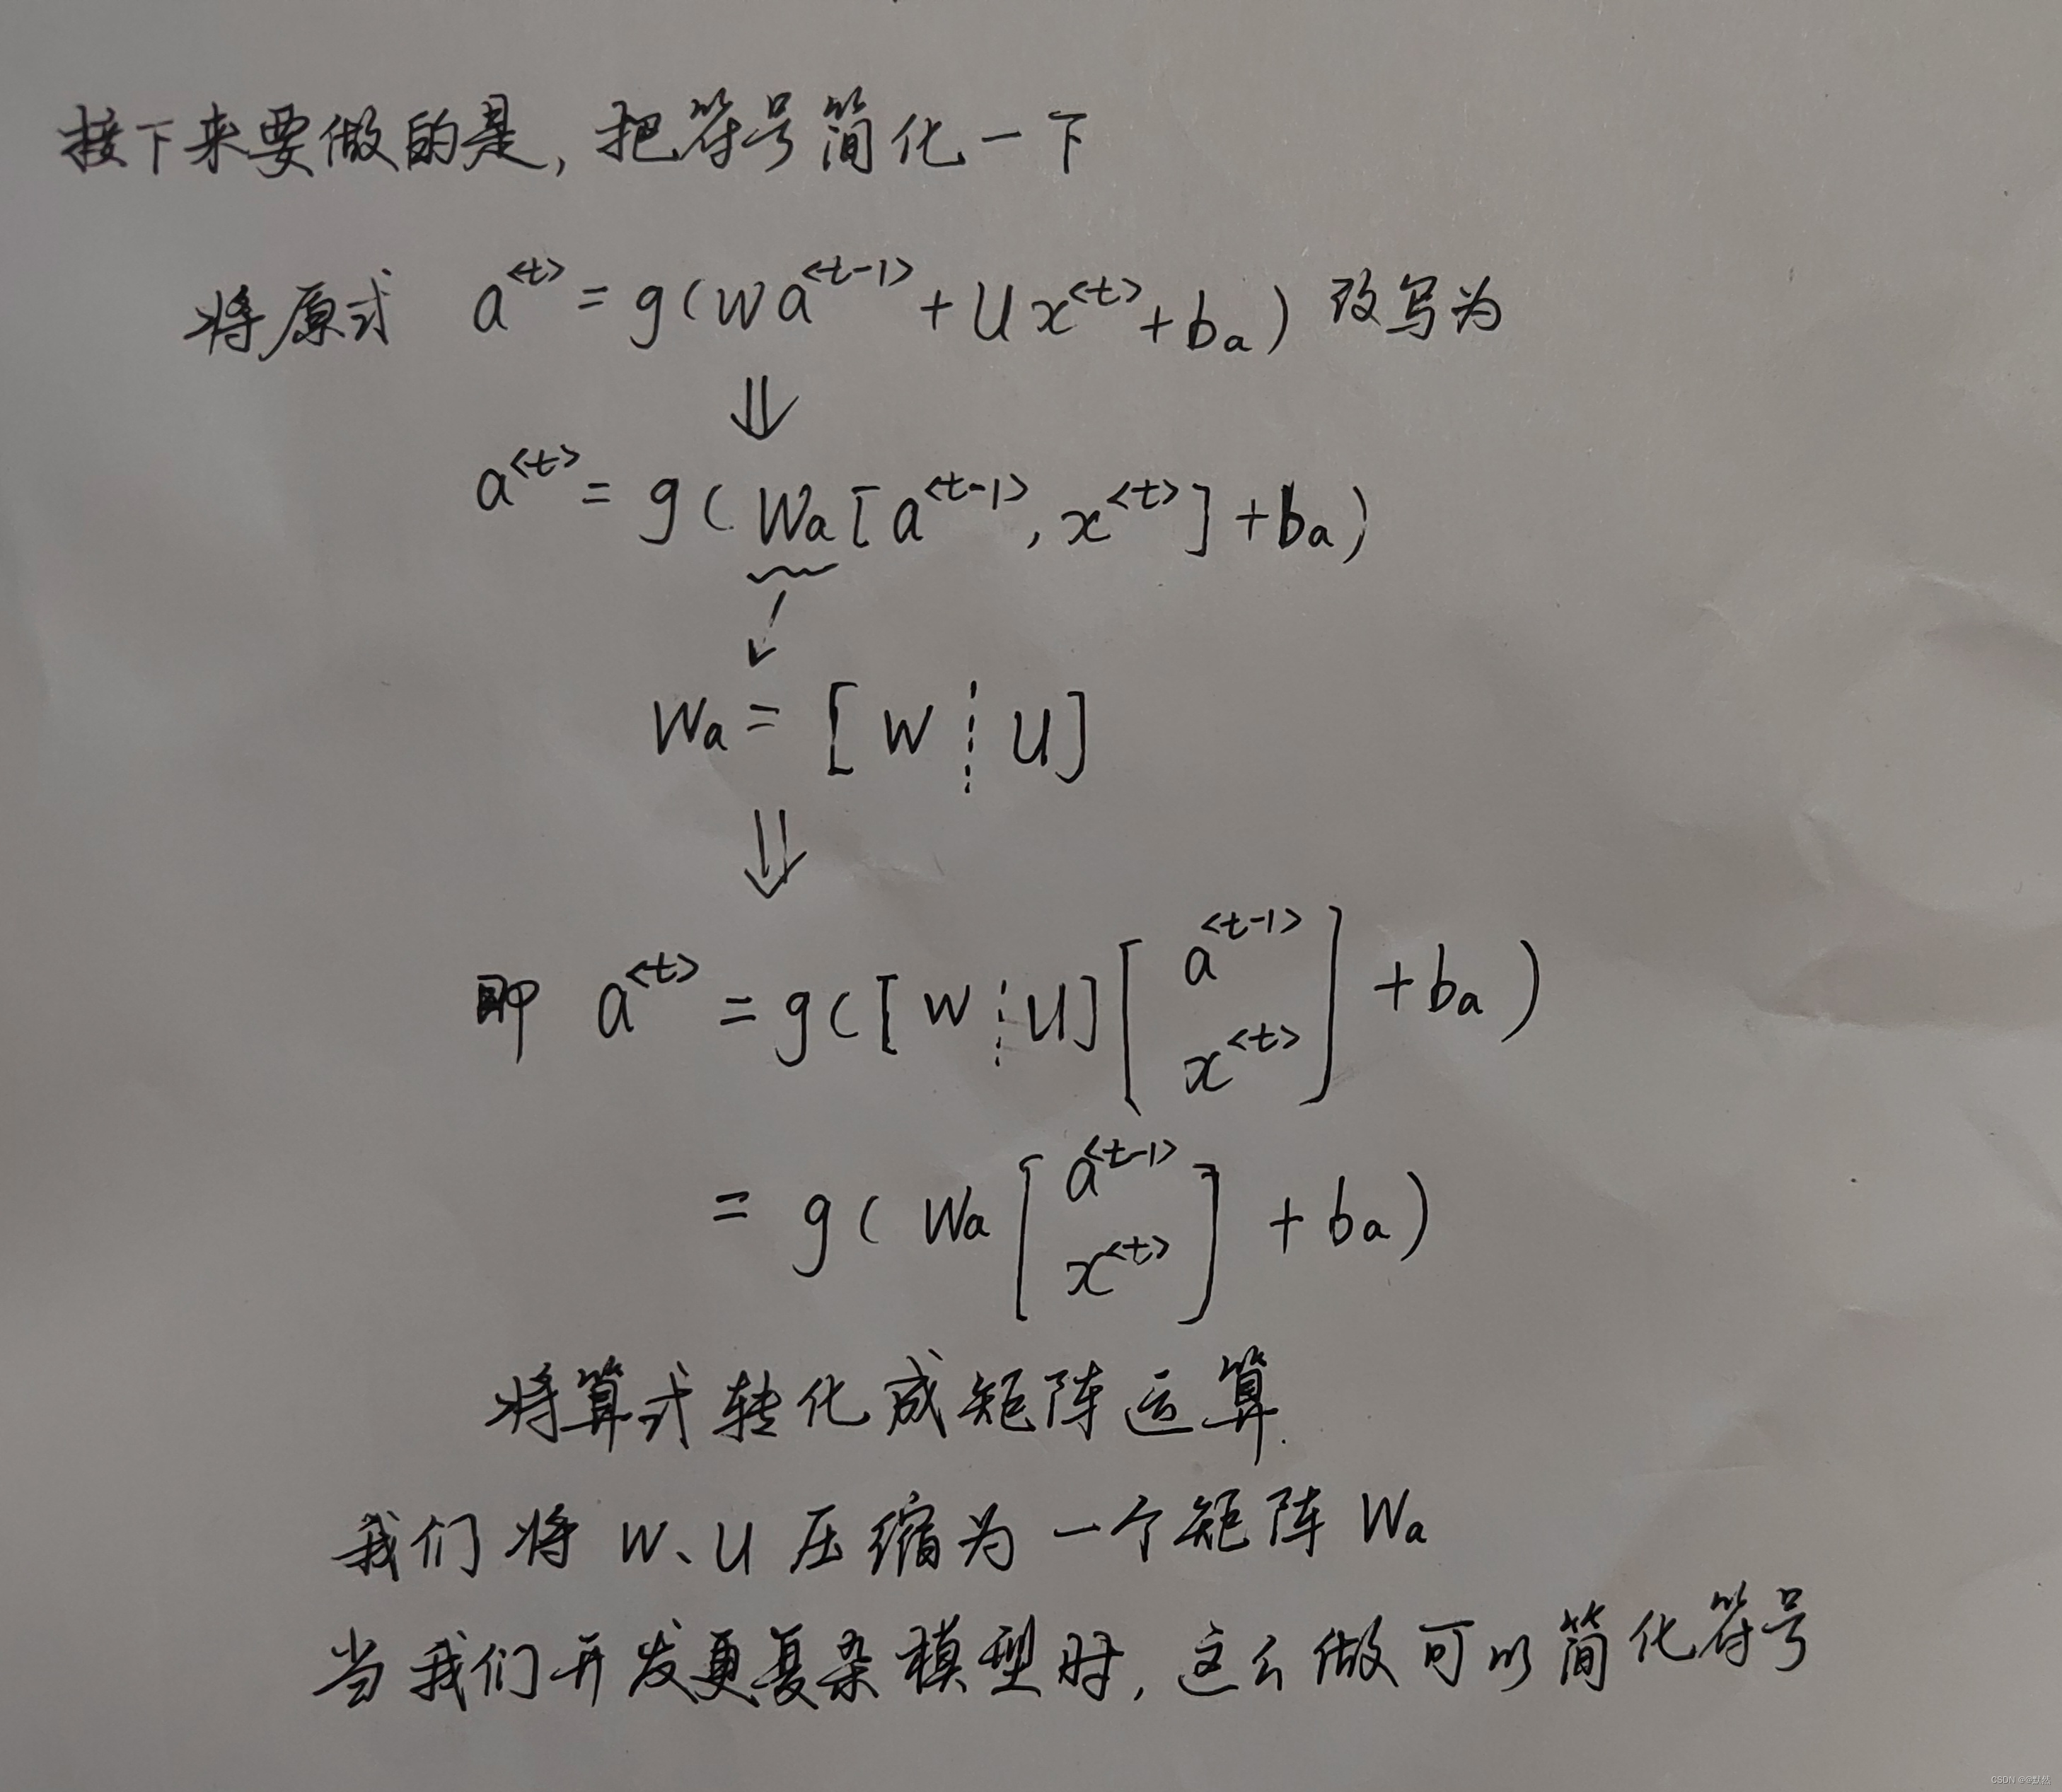 接下来要做的是，把符号简化一下
将原式 a^{<t>} = g(Wa^{<t-1>} + Ux^{<t>} + b_a) 改写为
⇓
a^{<t>} = g(W_a[a^{<t-1>}, x^{<t>}] + b_a)
W_a = [W ⋮ U]
⇓
即 a^{<t>} = g([W ⋮ U] [a^{<t-1>} ; x^{<t>}] + b_a)
= g(W_a [a^{<t-1>} ; x^{<t>}] + b_a)
将算式转化成矩阵运算.
我们将 W、U 压缩为一个矩阵 W_a
当我们开发更复杂模型时，这么做可以简化符号
CSDN @@默然